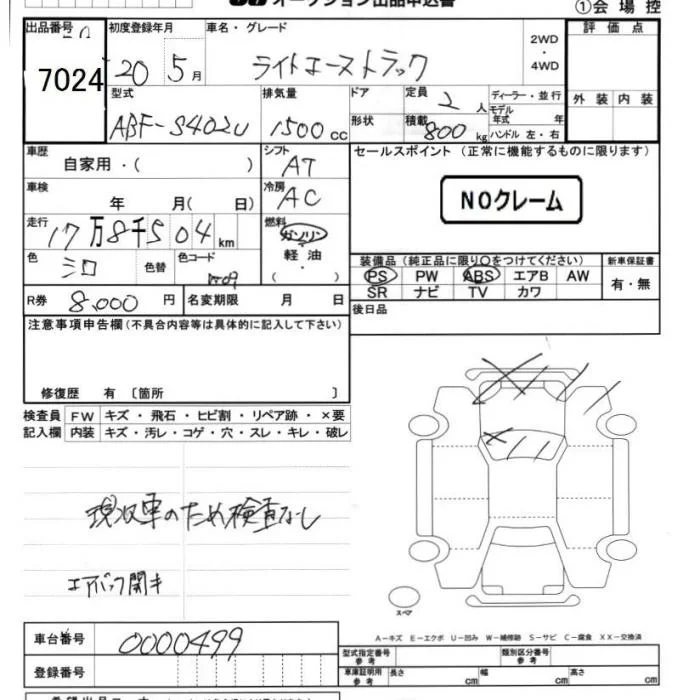 オークション出品申込書
①会場控
出品番号 初度登録年月 車名・グレード 2WD・4WD 評価点
7024 20 5月 ライトエーストラック
型式 排気量 ドア 定員 2人 ディーラー・並行 外装 内装
ABF-S402U 1500cc 形状 積載 800kg モデル年式 年 ハンドル 左・右
車歴 シフト セールスポイント (正常に機能するものに限ります)
自家用・( ) AT
車検 冷房 NOクレーム
年 月( 日) AC
走行 燃料
17万8千504km ガソリン
色 色替 色コード 軽油 装備品 (純正品に限り○をつけてください) 新車保証書
シロ ・ PS PW ABS エアB AW 有・無
( ) SR ナビ TV カワ
R券 8,000円 名変期限 月 日 後日品
注意事項申告欄 (不具合内容等は具体的に記入して下さい)
修復歴 有 〔箇所 〕
検査員 FW キズ・飛石・ヒビ割・リペア跡・×要
記入欄 内装 キズ・汚レ・コゲ・穴・スレ・キレ・破レ
現状車のため検査なし
エアバック開キ
スペア
A-キズ E-エクボ U-凹み W-補修跡 S-サビ C-腐食 XX-交換済
車台番号 0000499 型式指定番号 参考 類別区分番号 参考
登録番号 車庫証明用 参考 長さ cm 幅 cm 高さ cm